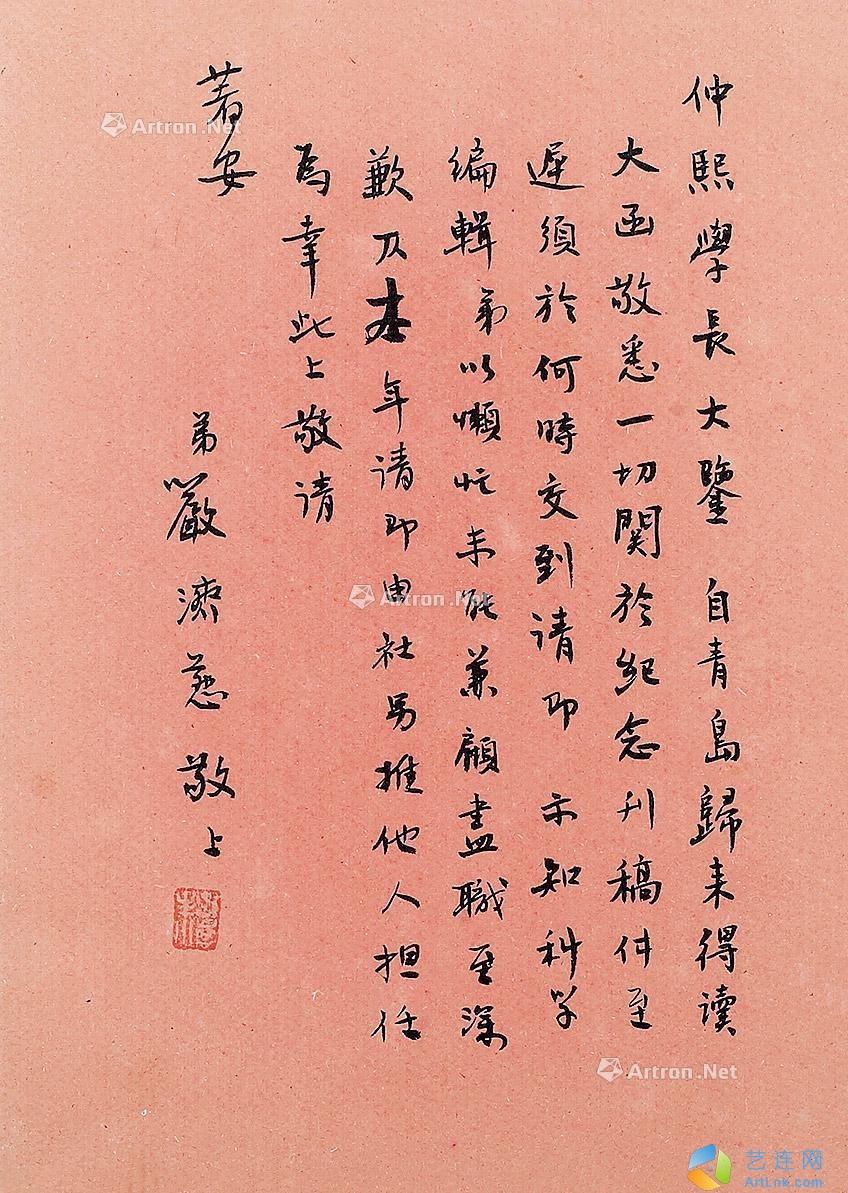 仲熙學長大鑒 自青島歸来得读
大函敬悉一切関於紀念刊稿件至
遲須於何時交到请即 示知科学
編輯弟以懶忙未能兼顧盡職至深
歉仄本年请即由社另推他人担任
為幸此上敬请
著安
弟嚴濟慈敬上
Artron.Net
Artron.Net
Artron.Net
艺连网
ArtLnk.com